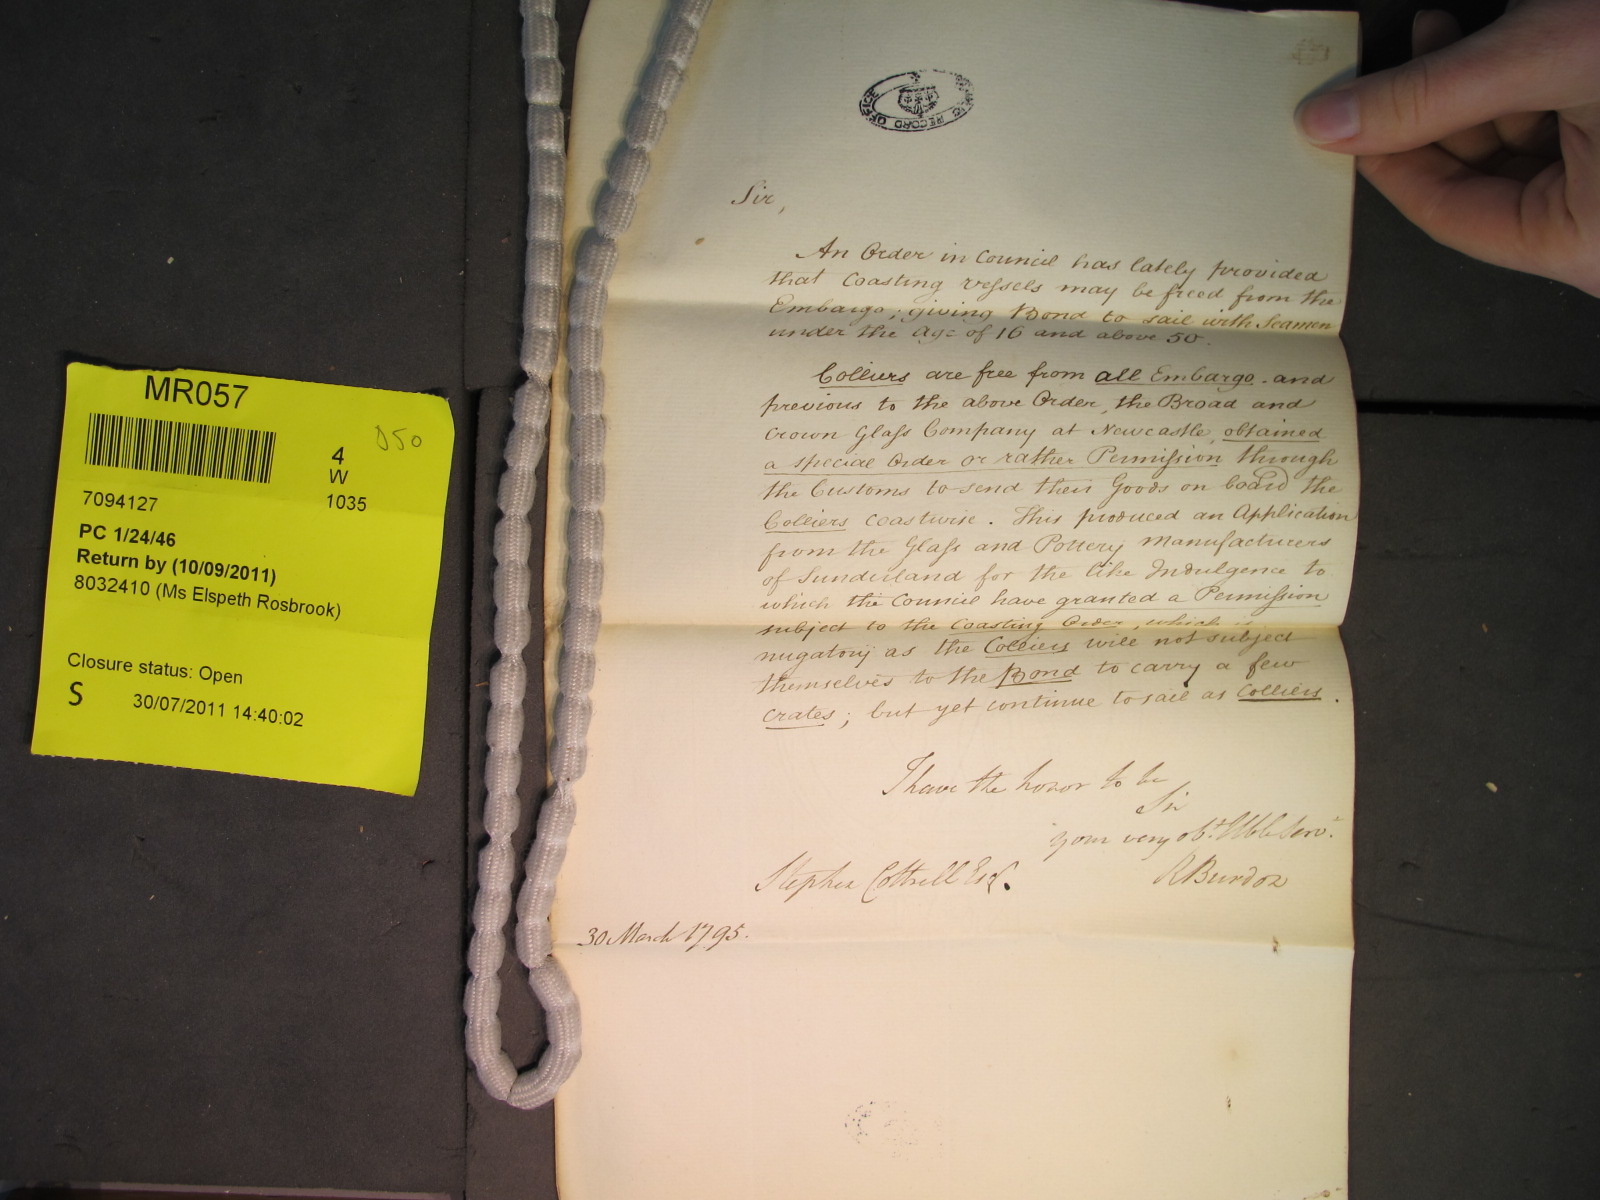 MR057
4
W
1035
D50
7094127
PC 1/24/46
Return by (10/09/2011)
8032410 (Ms Elspeth Rosbrook)
Closure status: Open
S
30/07/2011 14:40:02
PUBLIC RECORD OFFICE
Sir,
An Order in Council has lately provided
that Coasting vessels may be freed from the
Embargo; giving Bond to sail with Seamen
under the Age of 16 and above 50.
Colliers are free from all Embargo. and
previous to the above Order, the Broad and
Crown Glass Company at Newcastle, obtained
a special Order or rather Permission through
the Customs to send their Goods on board the
Colliers coastwise. This produced an Application
from the Glass and Pottery Manufacturers
of Sunderland for the like Indulgence to
which the Council have granted a Permission
subject to the Coasting Order, which is
nugatory as the Colliers will not subject
themselves to the Bond to carry a few
Crates; but yet continue to sail as Colliers.
I have the honor to be
Sir
your very obt. Hble Servt.
Stephen Cottrell Esq. RBurdon
30 March 1795.